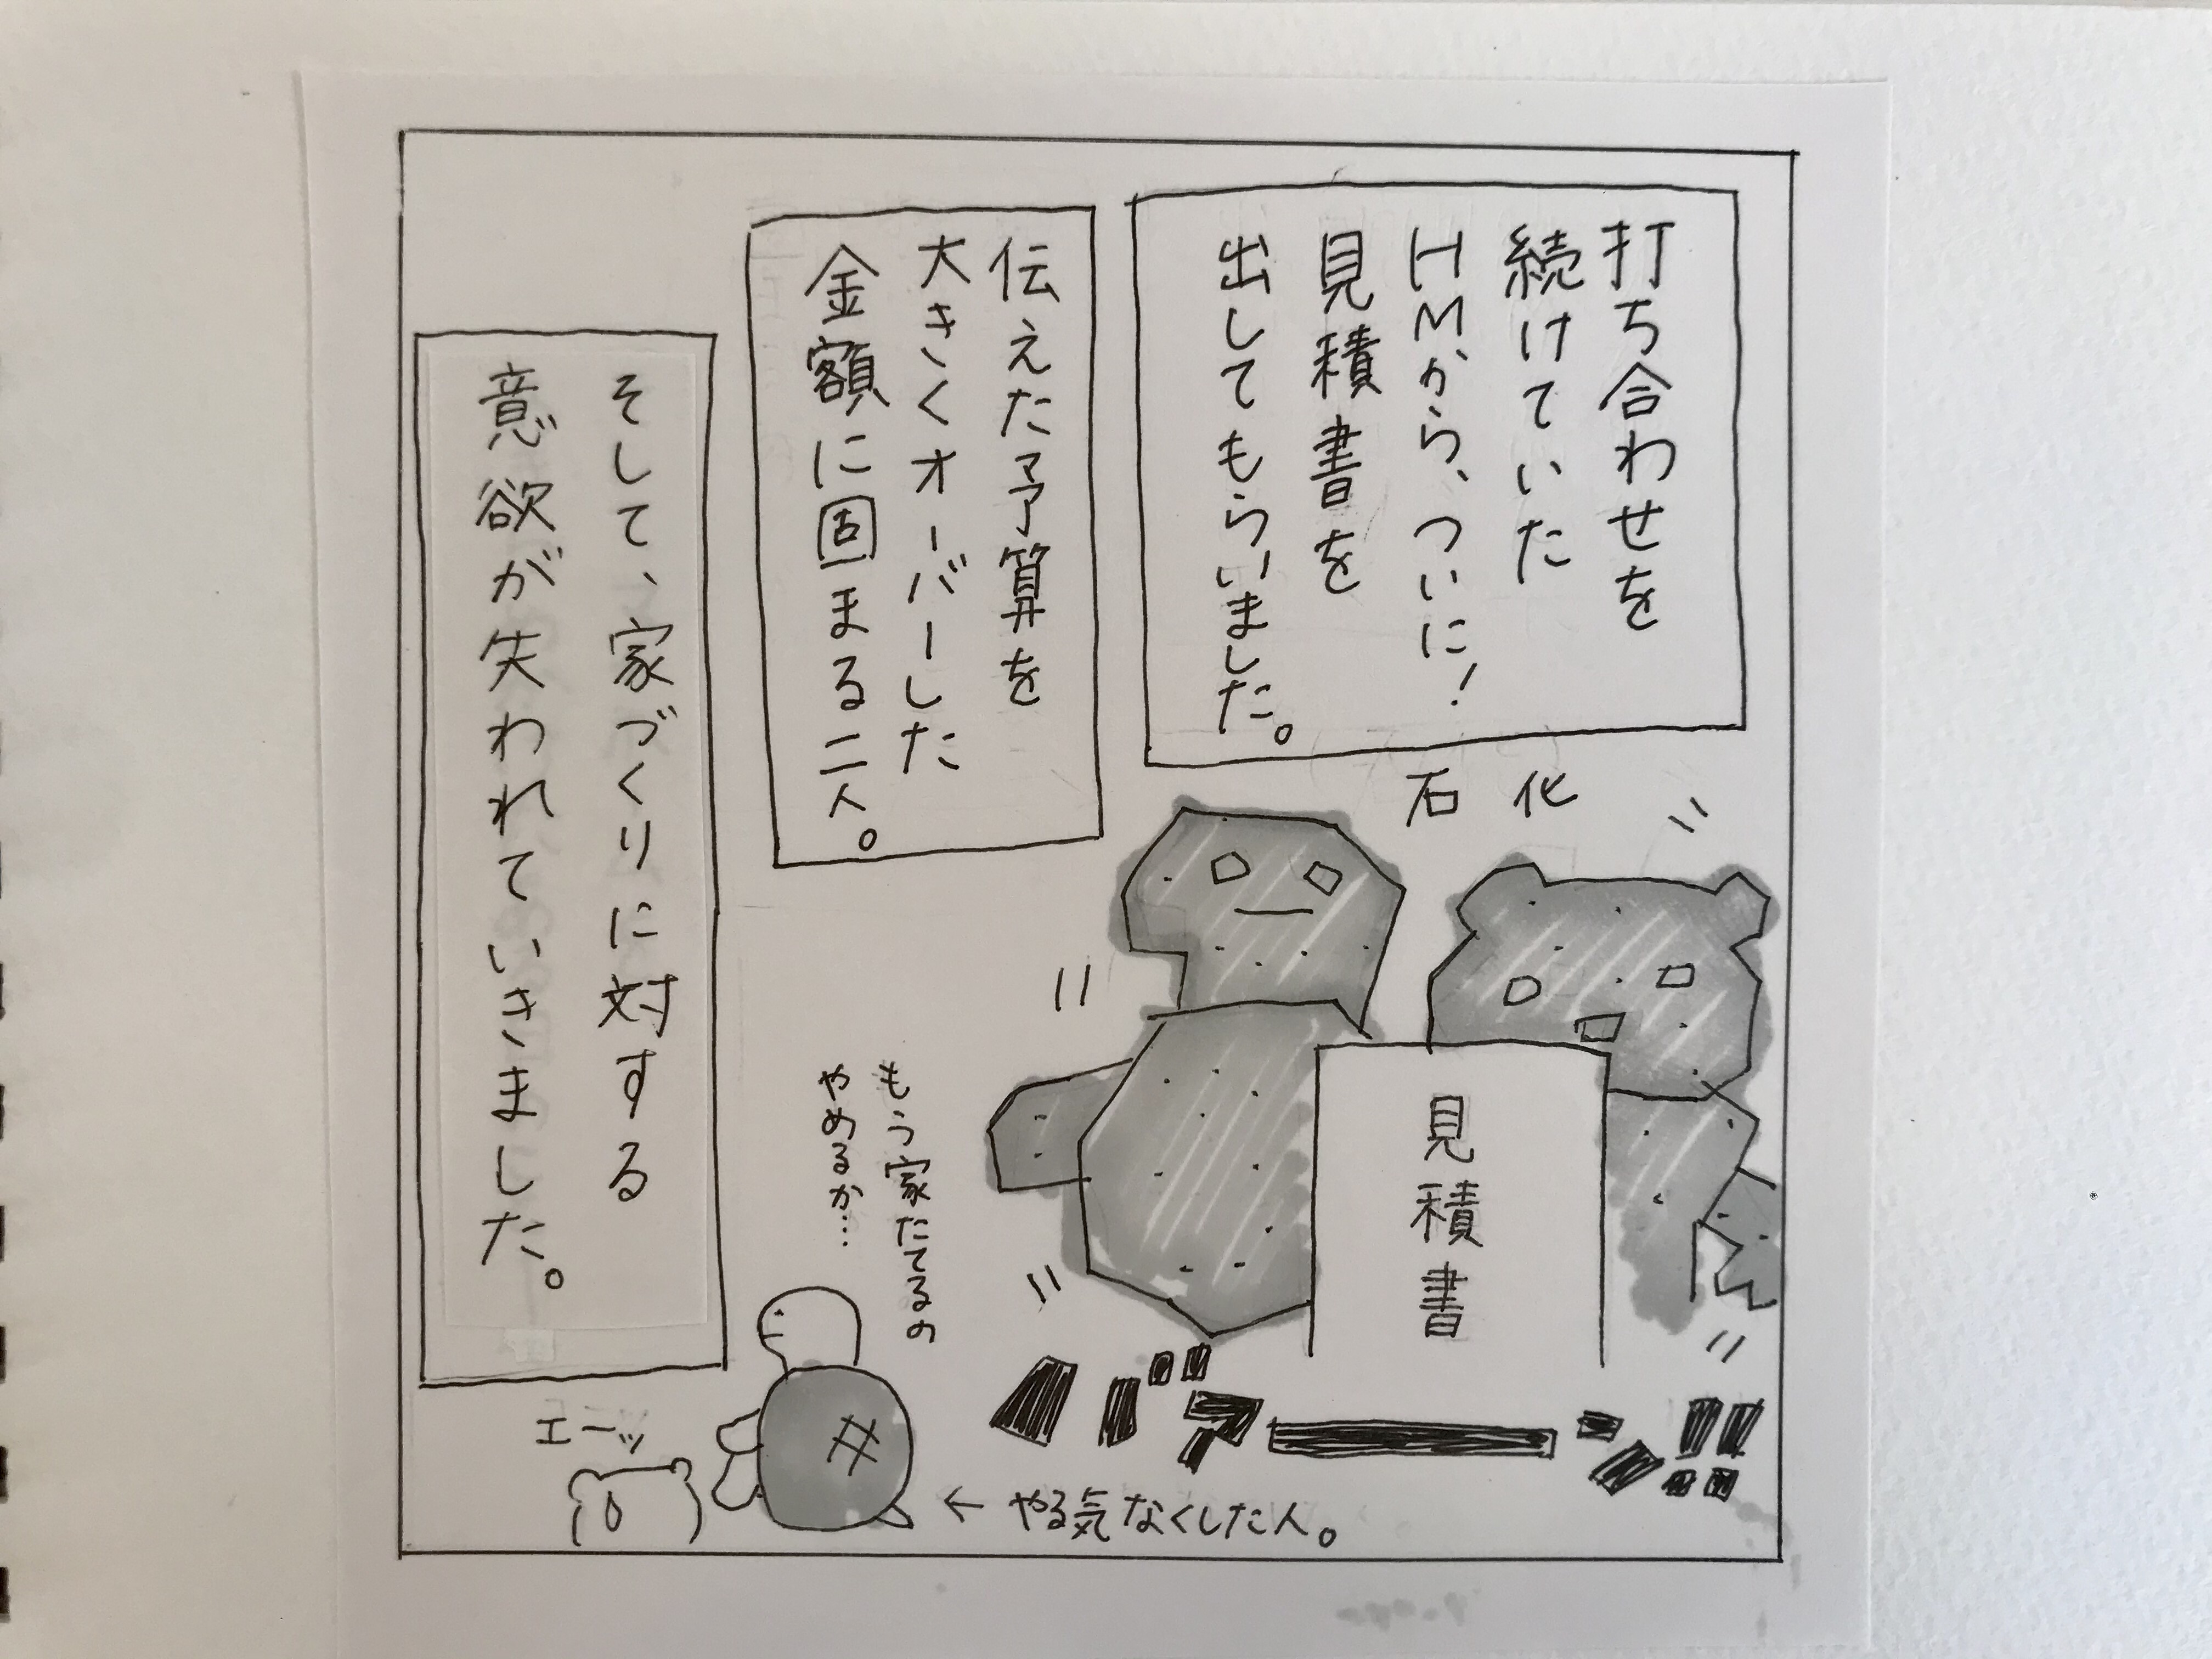 打ち合わせを
続けていた
HMから、ついに!
見積書を
出してもらいました。
伝えた予算を
大きくオーバーした
金額に固まる二人。
そして、家づくりに対する
意欲が失われていきました。
石化
見積書
バァーン!!
もう家たてるの
やめるか…
←やる気なくした人。
エーッ